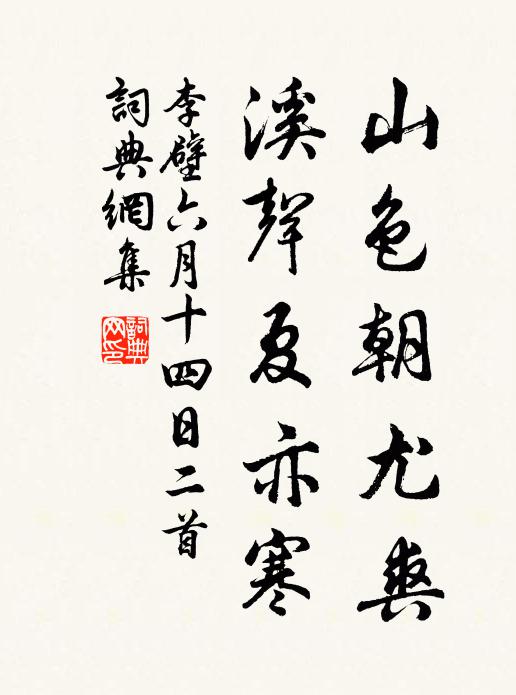 山色朝尤爽
溪聲夏亦寒
李壁六月十四日二首
詞典網集
詞典网印